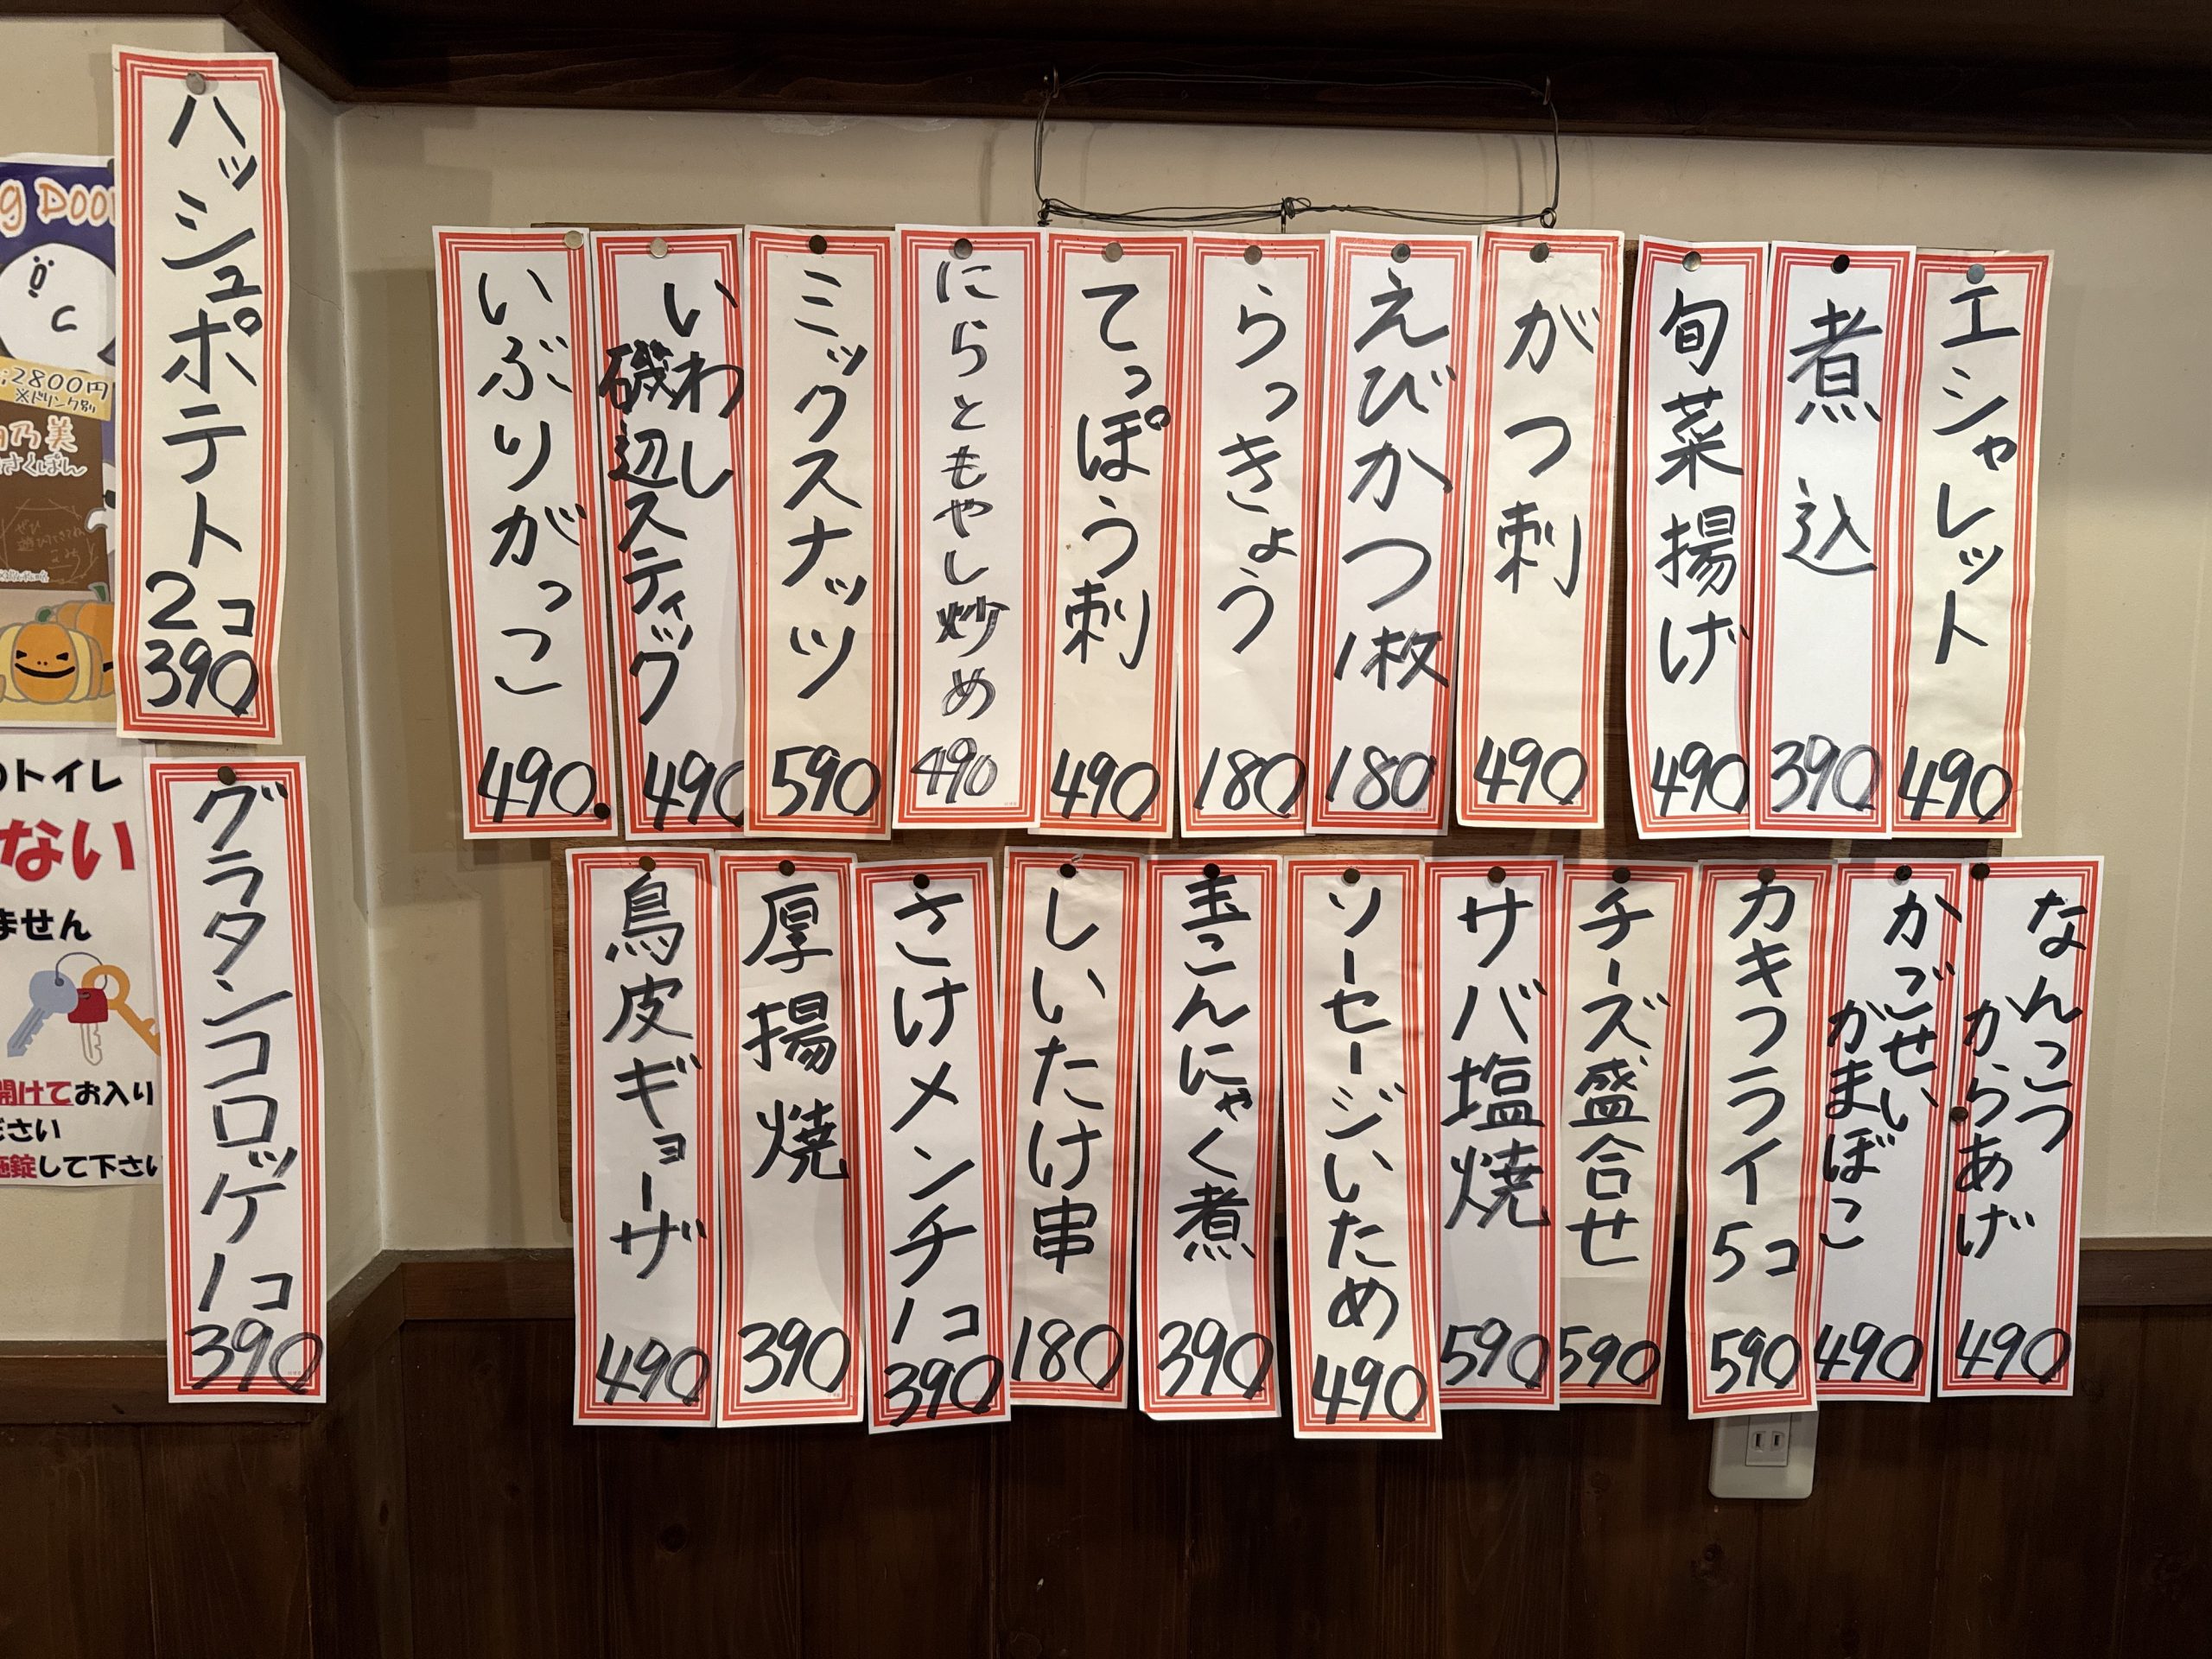 ハッシュポテト2コ
390
グラタンコロッケ1コ
390
エシャレット
490
煮込
390
旬菜揚げ
490
がつ刺
490
えびかつ1枚
180
らっきょう
180
てっぽう刺
490
にらともやし炒め
490
ミックスナッツ
590
いわし
磯辺スティック
490
いぶりがっこ
490
なんこつ
からあげ
490
かごせい
がまぼこ
490
カキフライ5コ
590
チーズ盛合せ
590
サバ塩焼
590
ソーセージいため
490
玉こんにゃく煮
390
しいたけ串
180
さけメンチ1コ
390
厚揚焼
390
鳥皮ギョーザ
490
g Door
;2800円
※ドリンク別
乃美
さくぽん
のトイレ
ない
ません
開けてお入り
ださい
施錠して下さい